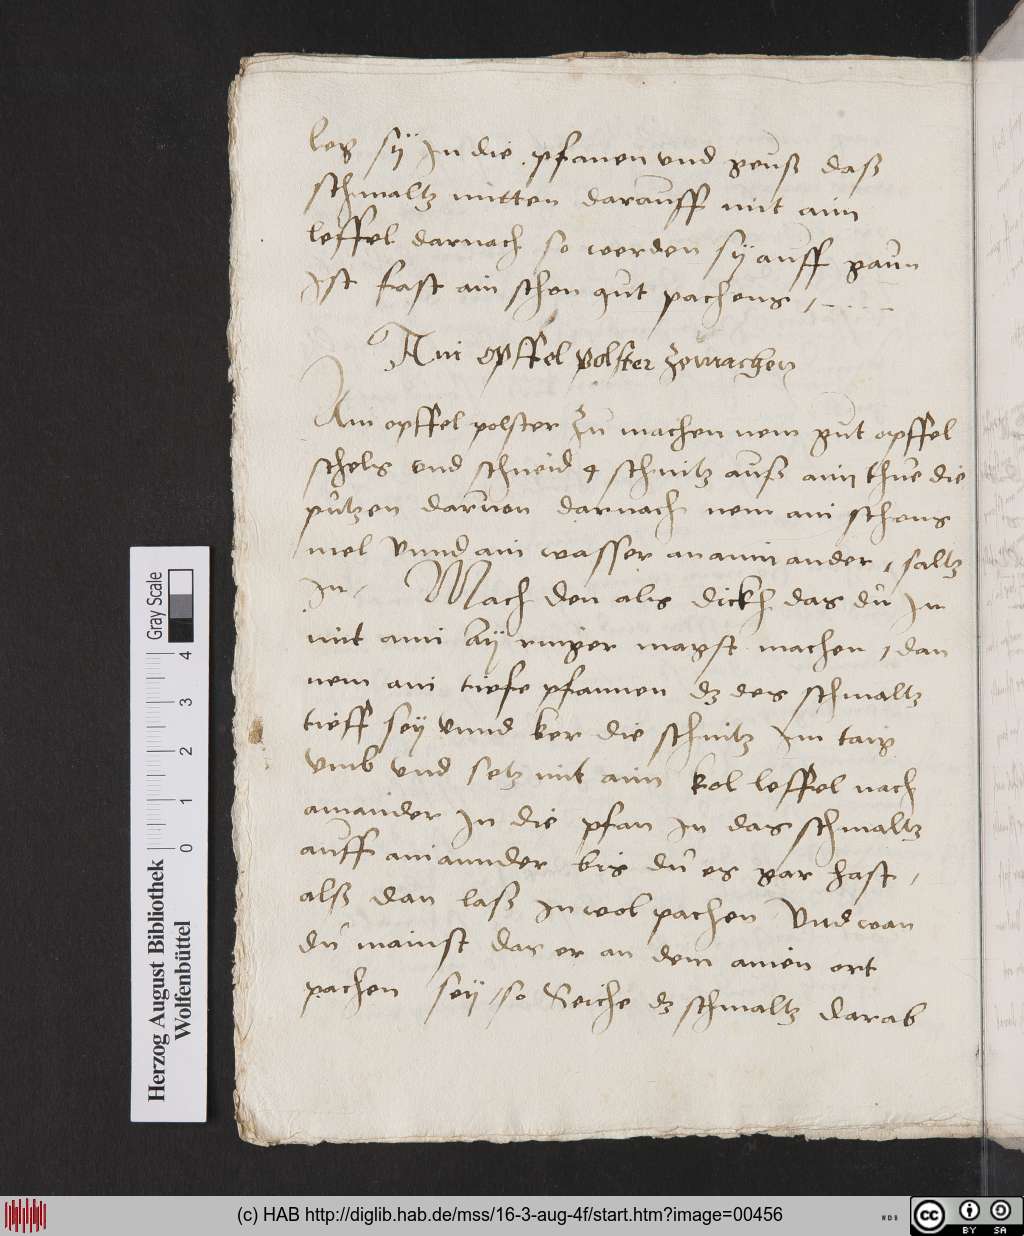 leg sÿ In die pfanen vnd geuß daß
schmaltz mitten darauff mit aim
leffel darnach so werden sÿ auff gaun
Ist fast ain schon gut pachens
Ain opffel polster zemachen
Ain opffel polster zu machen nem gut opffel
schels vnd schneid 4 schnitz auß aim thue die
putzen daruon darnach nem ain schons
mel vnnd ain wasser an ainander, saltz
in, Mach den als dickh das du In
mit aim aÿ ringer magst machen, dan
nem ain tiefe pfannen dz des schmaltz
tieff seÿ vnnd ker die schnitz Im taig
vmb vnd setz mit aim kol leffel nach
ainander In die pfan In das schmaltz
auff ainannder bis du es gar hast,
alß dan laß In wol pachen vnd wan
du mainst das er an dem ainen ort
pachen seÿ, so Seiche dz schmaltz darab
Herzog August Bibliothek
Wolfenbüttel
Gray Scale
0 1 2 3 4
(c) HAB http://diglib.hab.de/mss/16-3-aug-4f/start.htm?image=00456
WDB
cc BY SA